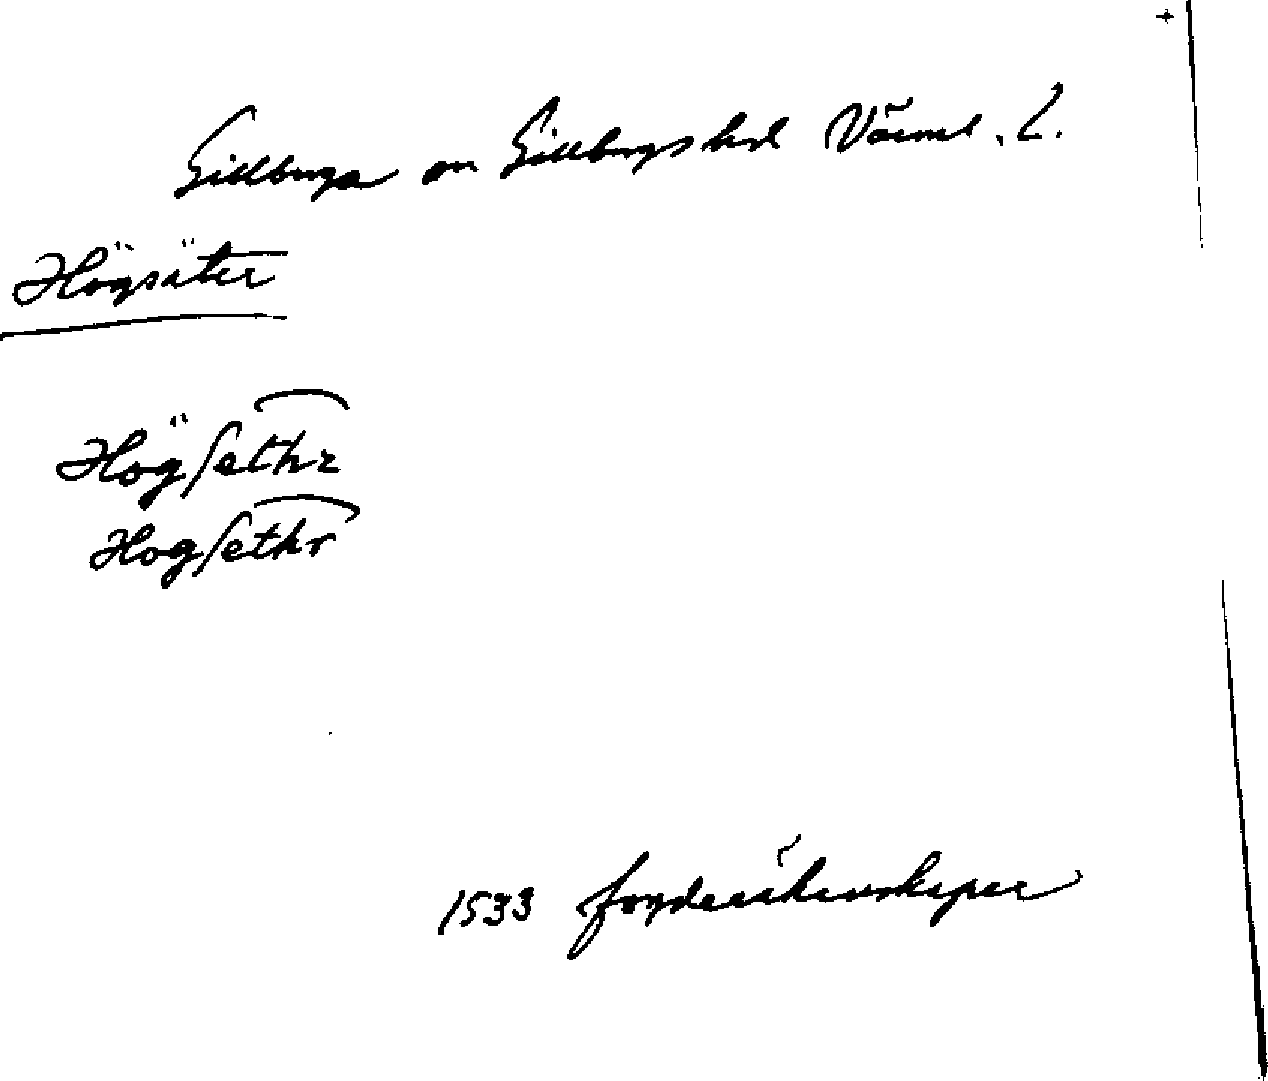 Gillberga sn Gillbergs hd Värml. L.
Högsäter
Högſethr
Hogſethr
1533 fogderäkenskaper